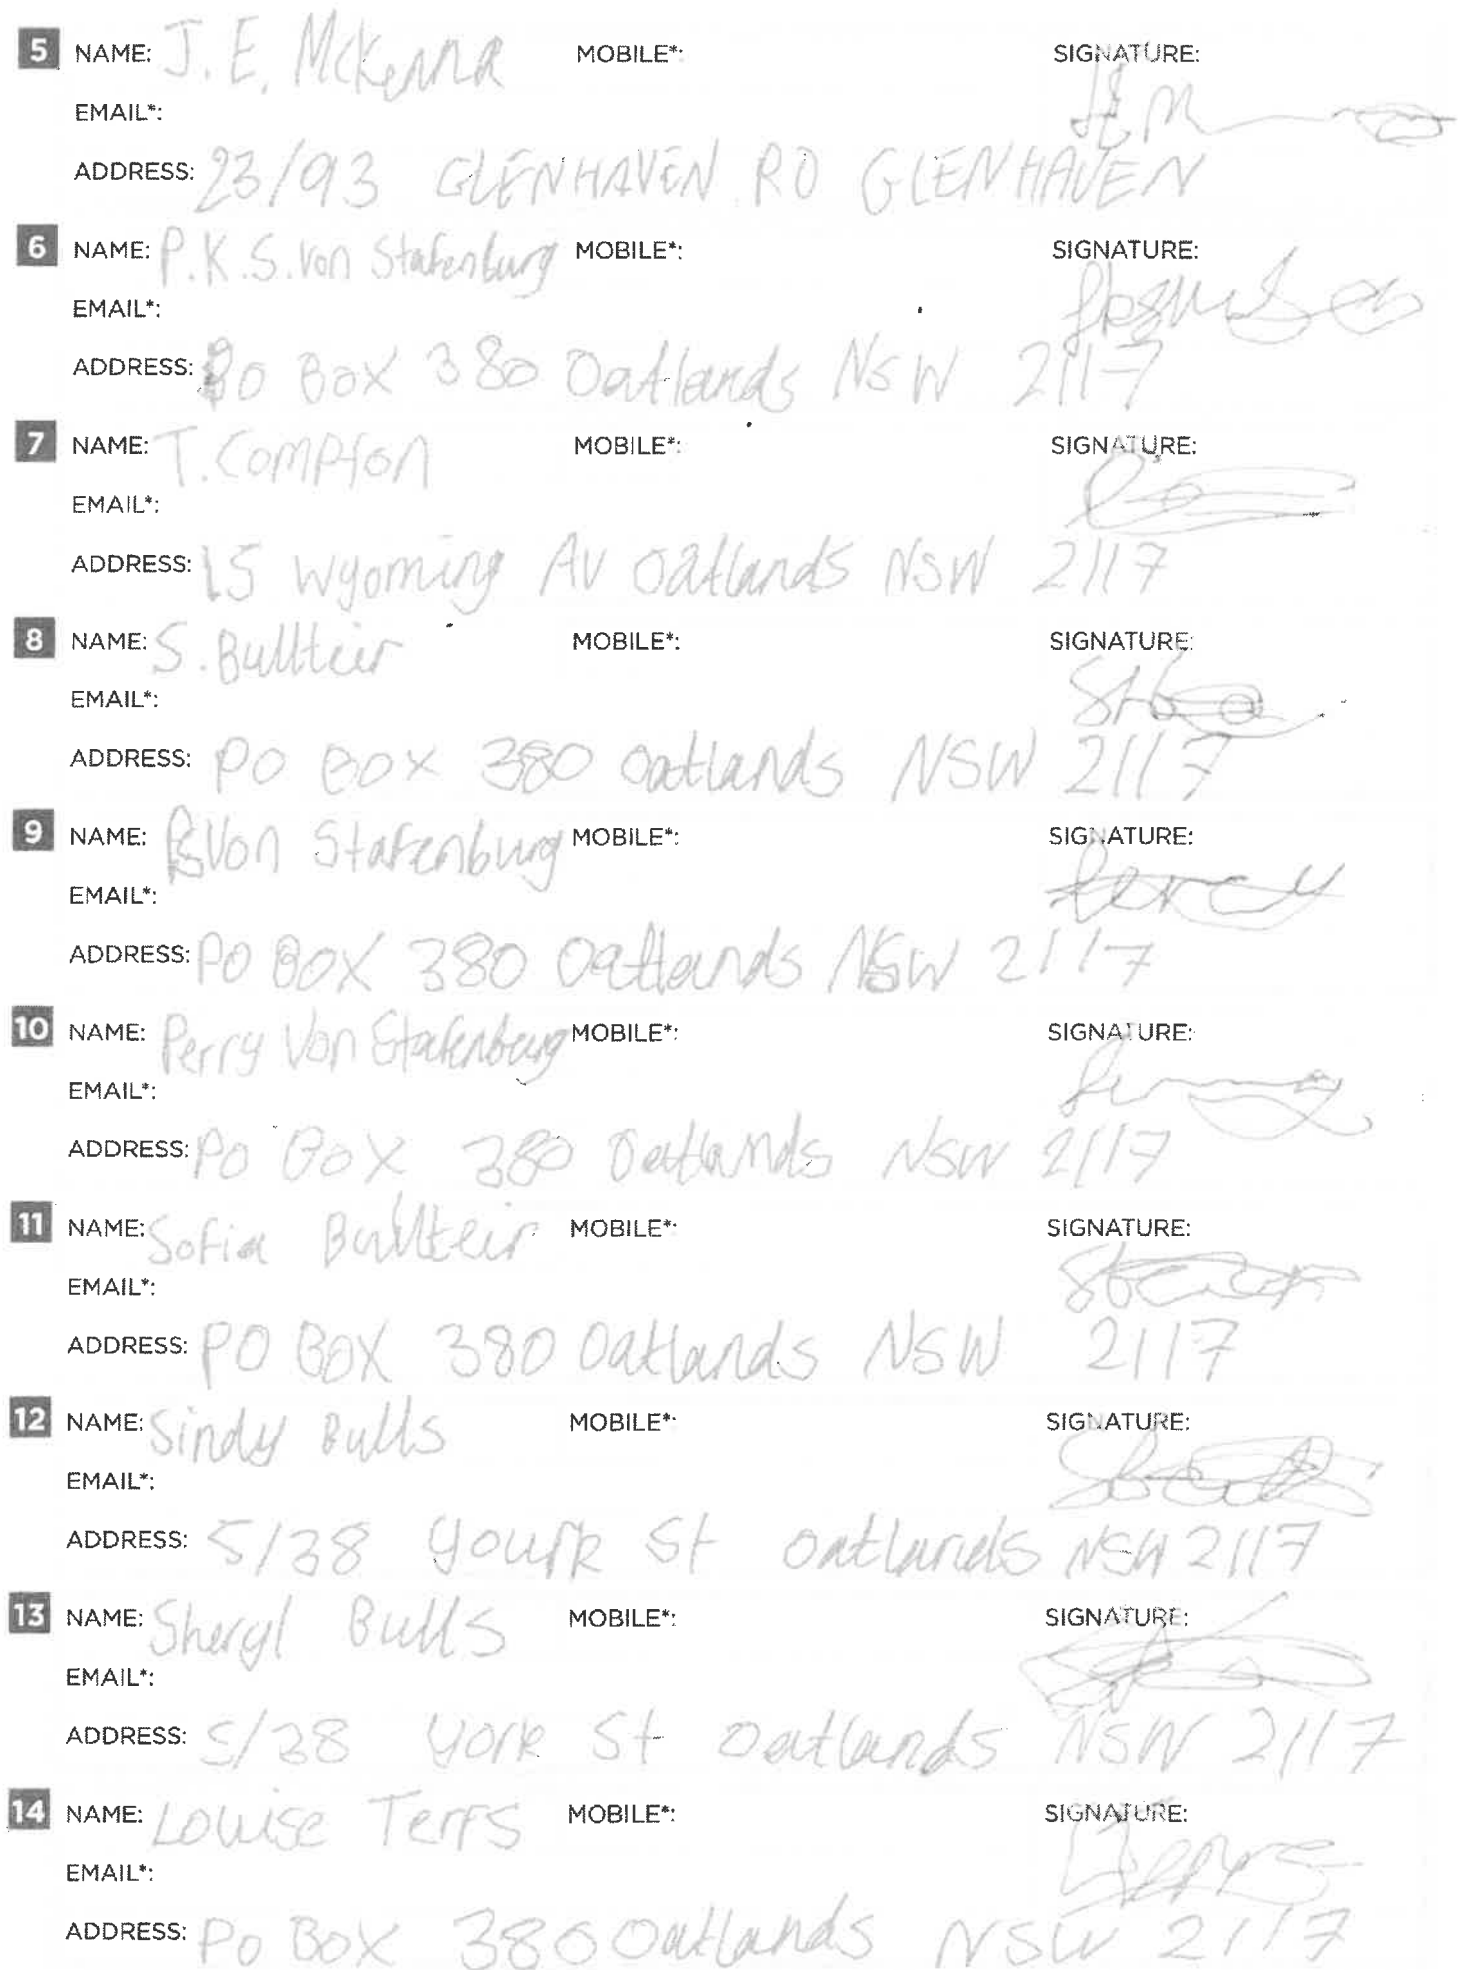 5 NAME: J. E. McKenna MOBILE*: SIGNATURE:
EMAIL*:
ADDRESS: 23/93 GLENHAVEN RD GLENHAVEN
6 NAME: P.K.S. Von Stafenburg MOBILE*: SIGNATURE:
EMAIL*:
ADDRESS: PO BOX 380 Oatlands NSW 2117
7 NAME: T. Compton MOBILE*: SIGNATURE:
EMAIL*:
ADDRESS: 15 Wyoming AV Oatlands NSW 2117
8 NAME: S. Bullteir MOBILE*: SIGNATURE:
EMAIL*:
ADDRESS: PO BOX 380 Oatlands NSW 2117
9 NAME: Von Stafenburg MOBILE*: SIGNATURE:
Percy
EMAIL*:
ADDRESS: PO BOX 380 Oatlands NSW 2117
10 NAME: Perry Von Stafenburg MOBILE*: SIGNATURE:
EMAIL*:
ADDRESS: PO BOX 380 Oatlands NSW 2117
11 NAME: Sofia Bullteir MOBILE*: SIGNATURE:
EMAIL*:
ADDRESS: PO BOX 380 Oatlands NSW 2117
12 NAME: Sindy Bulls MOBILE*: SIGNATURE:
EMAIL*:
ADDRESS: 5/38 Yourk St Oatlands NSW 2117
13 NAME: Sheryl Bulls MOBILE*: SIGNATURE:
EMAIL*:
ADDRESS: 5/38 York St Oatlands NSW 2117
14 NAME: Louise Terfs MOBILE*: SIGNATURE:
EMAIL*:
ADDRESS: PO BOX 380 Oatlands NSW 2117